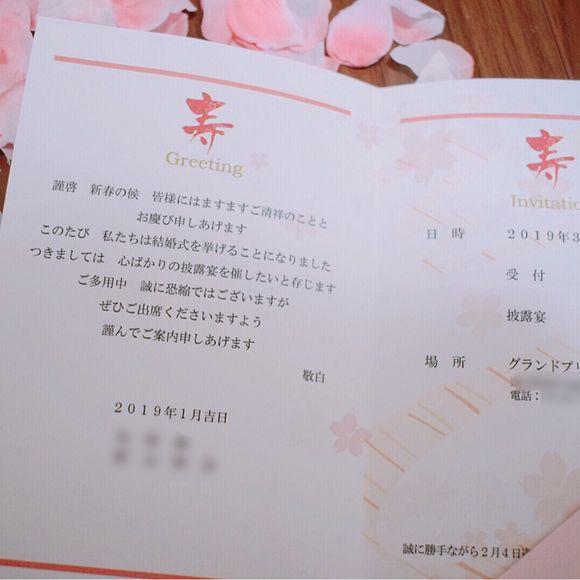 寿
Greeting
謹啓　新春の候　皆様にはますますご清祥のことと
お慶び申しあげます
このたび　私たちは結婚式を挙げることになりました
つきましては　心ばかりの披露宴を催したいと存じます
ご多用中　誠に恐縮ではございますが
ぜひご出席くださいますよう
謹んでご案内申しあげます
敬白
２０１９年１月吉日
寿
Invitatio
日　時　２０１９年３
受　付
披露宴
場　所　グランドプリ
電話：
誠に勝手ながら２月４日